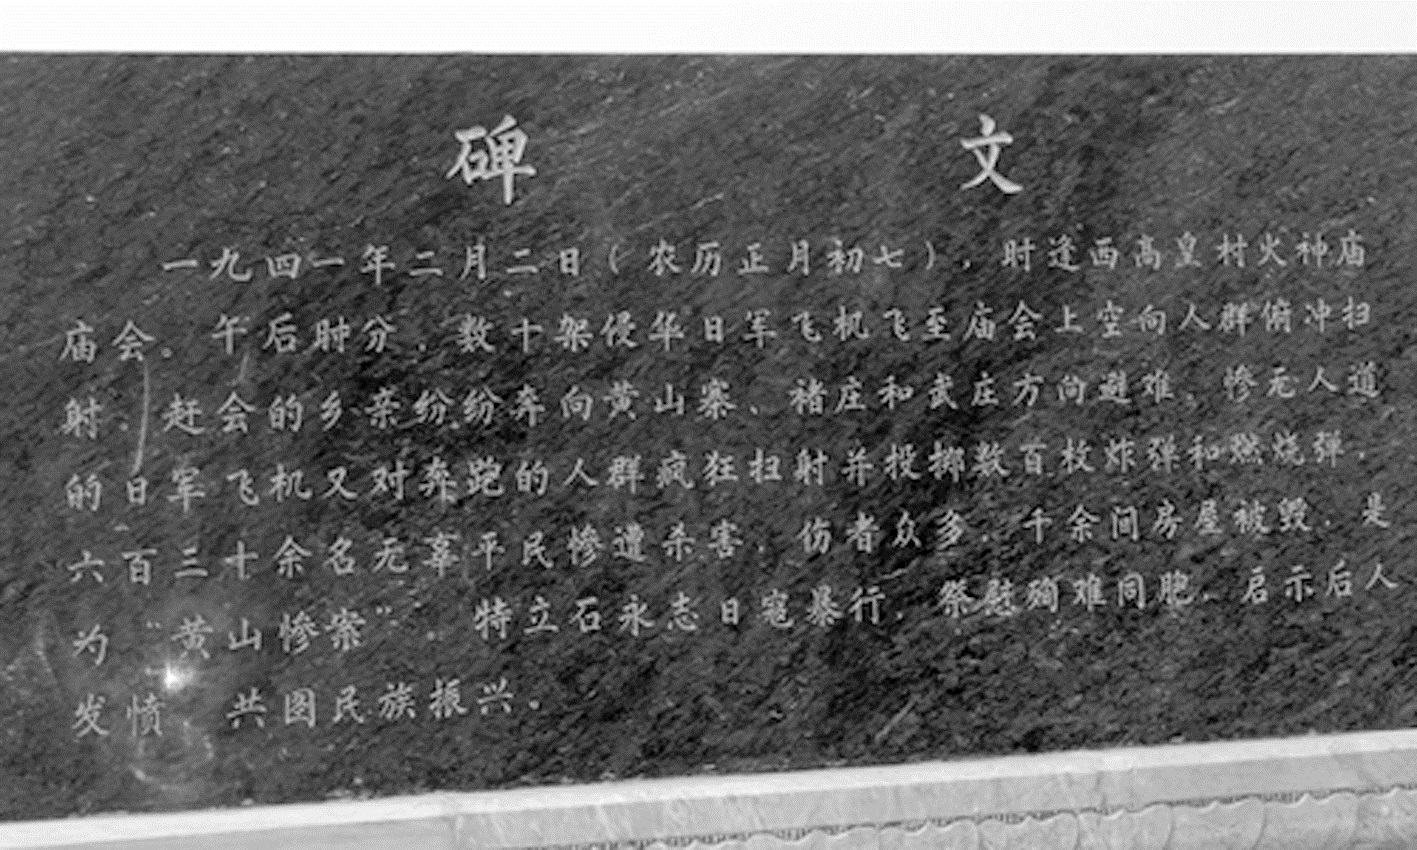 碑 文
一九四一年二月二日（农历正月初七），时逢西高皇村火神庙
庙会。午后时分，数十架侵华日军飞机飞至庙会上空向人群俯冲扫
射，赶会的乡亲纷纷奔向黄山寨、褚庄和武庄方向避难，惨无人道
的日军飞机又对奔跑的人群疯狂扫射并投掷数百枚炸弹和燃烧弹，
六百三十余名无辜平民惨遭杀害，伤者众多，千余间房屋被毁，是
为“黄山惨案”。特立石永志日寇暴行，祭慰殉难同胞，启示后人
发愤，共图民族振兴。